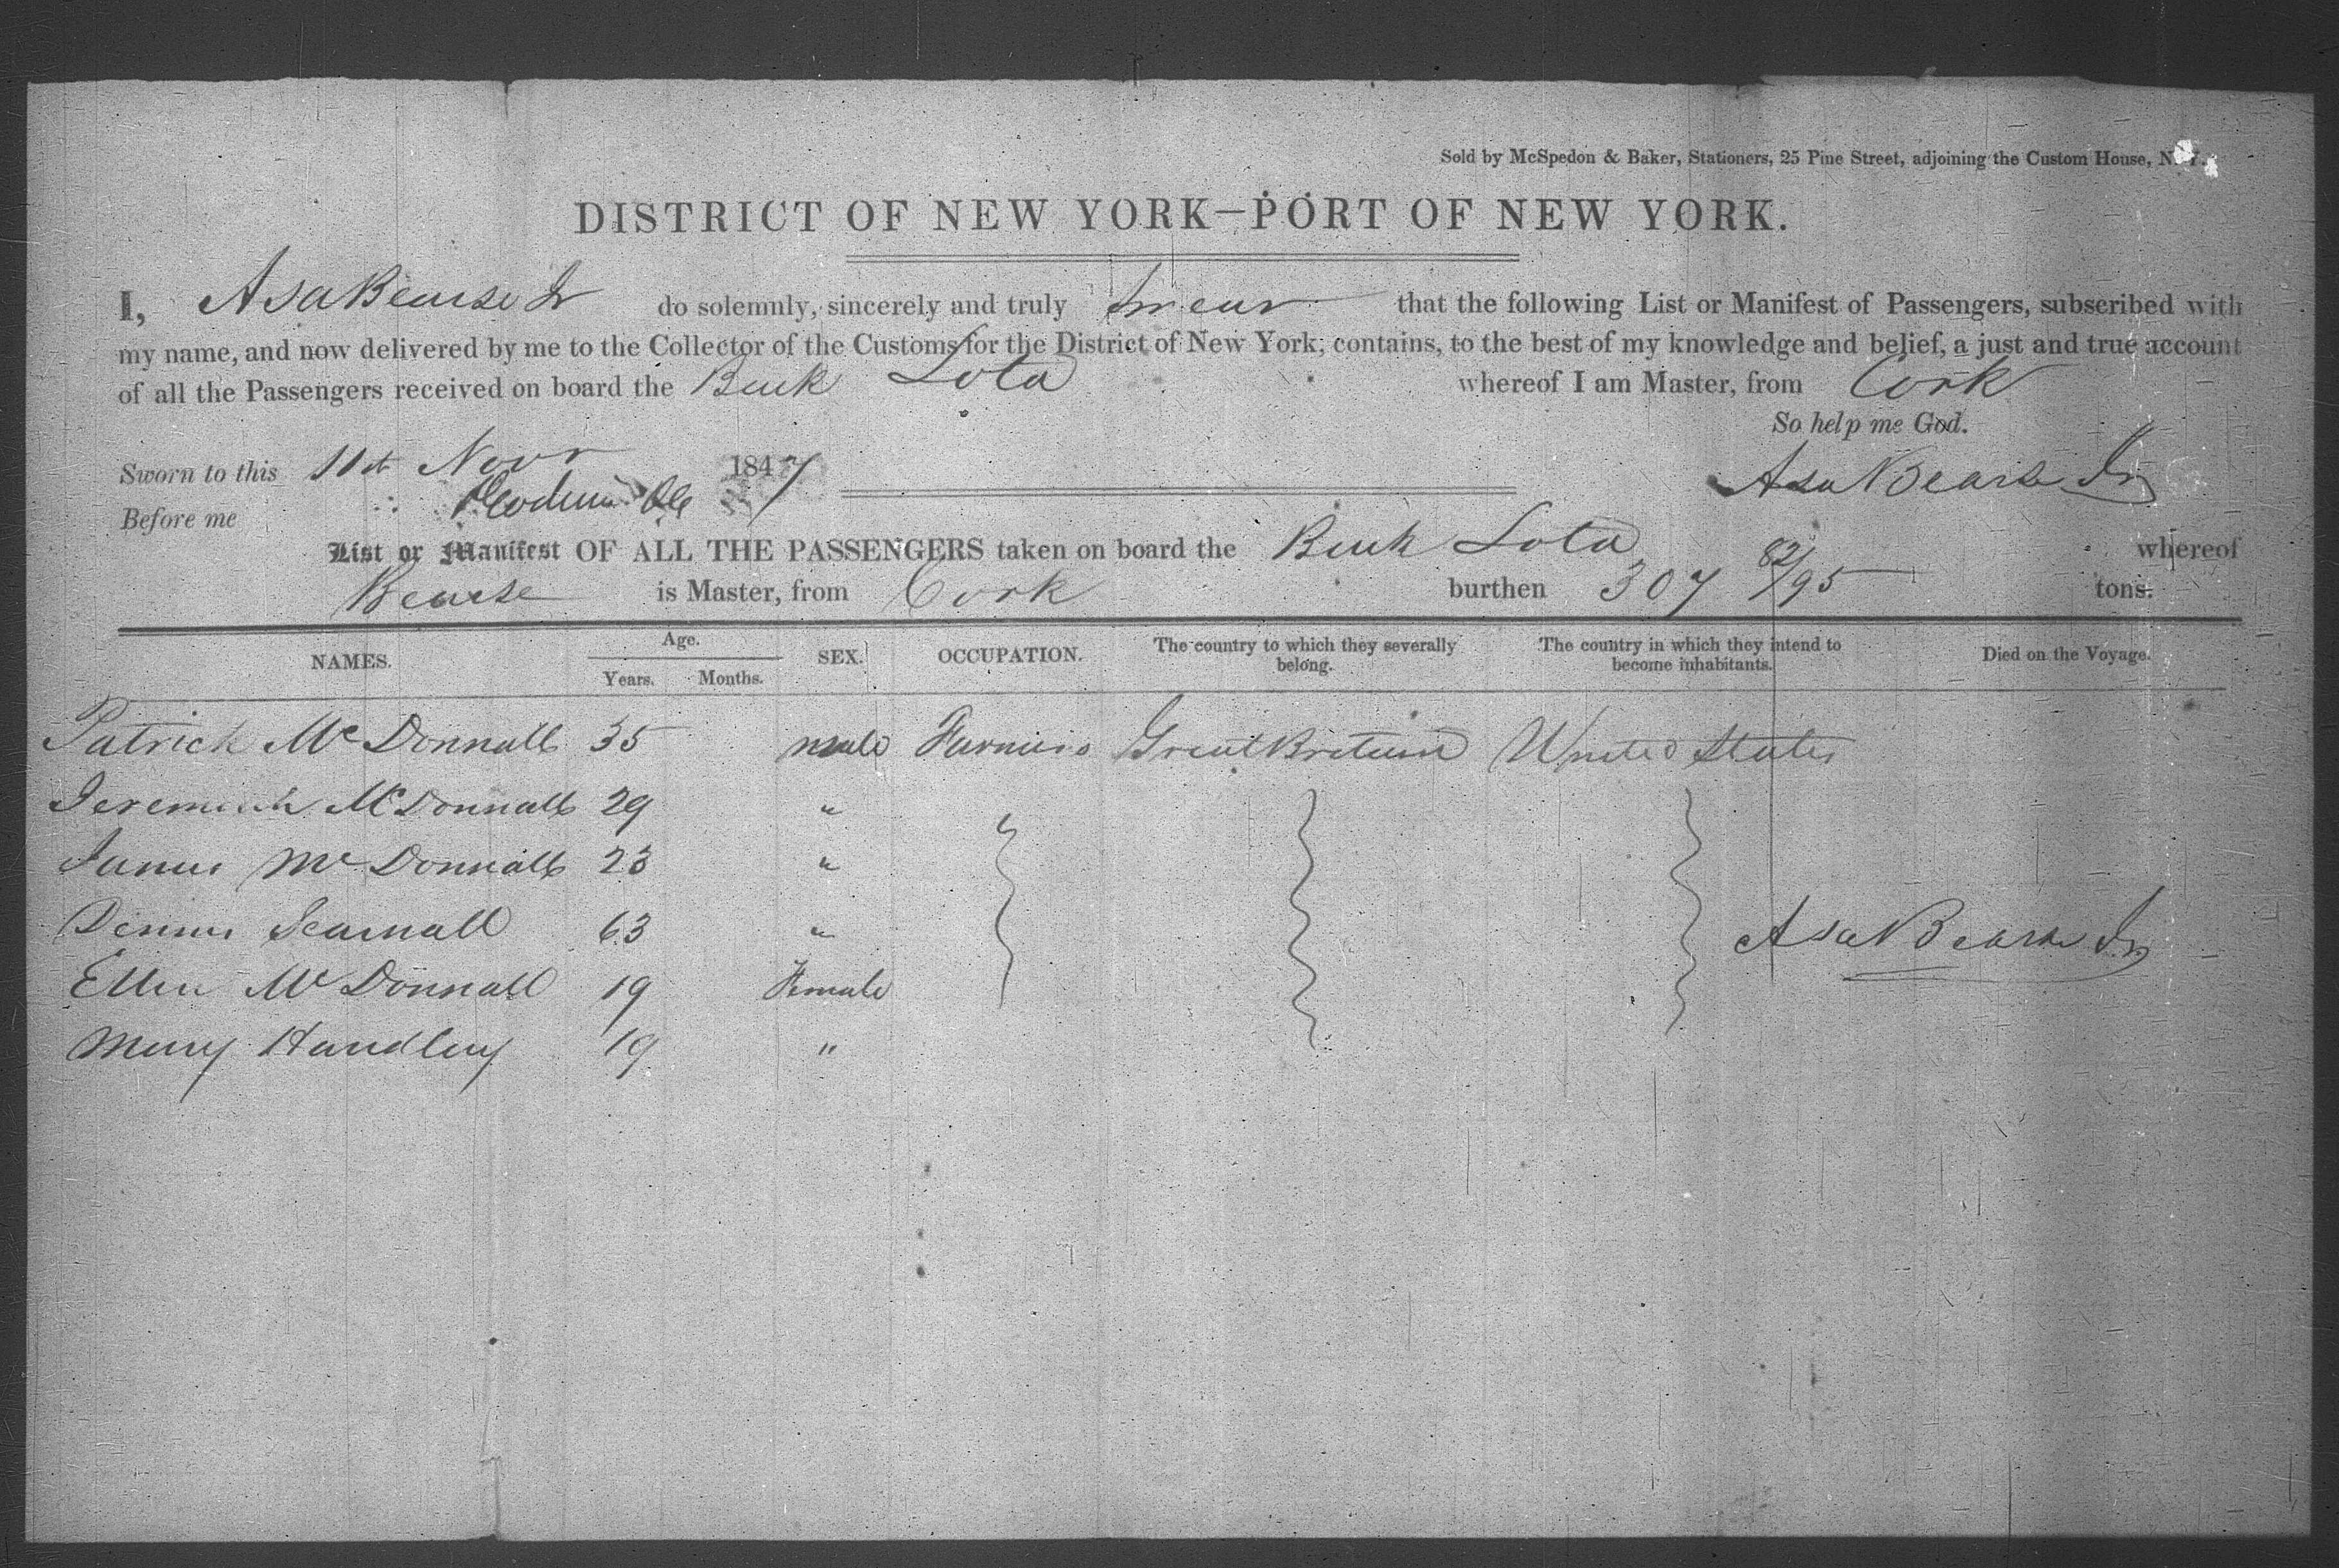 Sold by McSpedon & Baker, Stationers, 25 Pine Street, adjoining the Custom House, N. Y.
DISTRICT OF NEW YORK—PORT OF NEW YORK.
I, Asa Bearse Jr do solemnly, sincerely and truly swear that the following List or Manifest of Passengers, subscribed with
my name, and now delivered by me to the Collector of the Customs for the District of New York, contains, to the best of my knowledge and belief, a just and true account
of all the Passengers received on board the Bark Lota whereof I am Master, from Cork
So help me God.
Sworn to this 11th Novr 1847 Asa Bearse Jr
Before me
List or Manifest OF ALL THE PASSENGERS taken on board the Bark Lota whereof
Bearse is Master, from Cork burthen 307 82/95 tons.
NAMES. Age. Years. Months. SEX. OCCUPATION. The country to which they severally belong. The country in which they intend to become inhabitants. Died on the Voyage.
Patrick McDonnall 35 male Farmers Great Britain United States
Jeremiah McDonnall 29 "
James McDonnall 23 "
Dennis Scannall 63 " Asa Bearse Jr
Ellen McDonnall 19 Female
Mary Handley 19 "